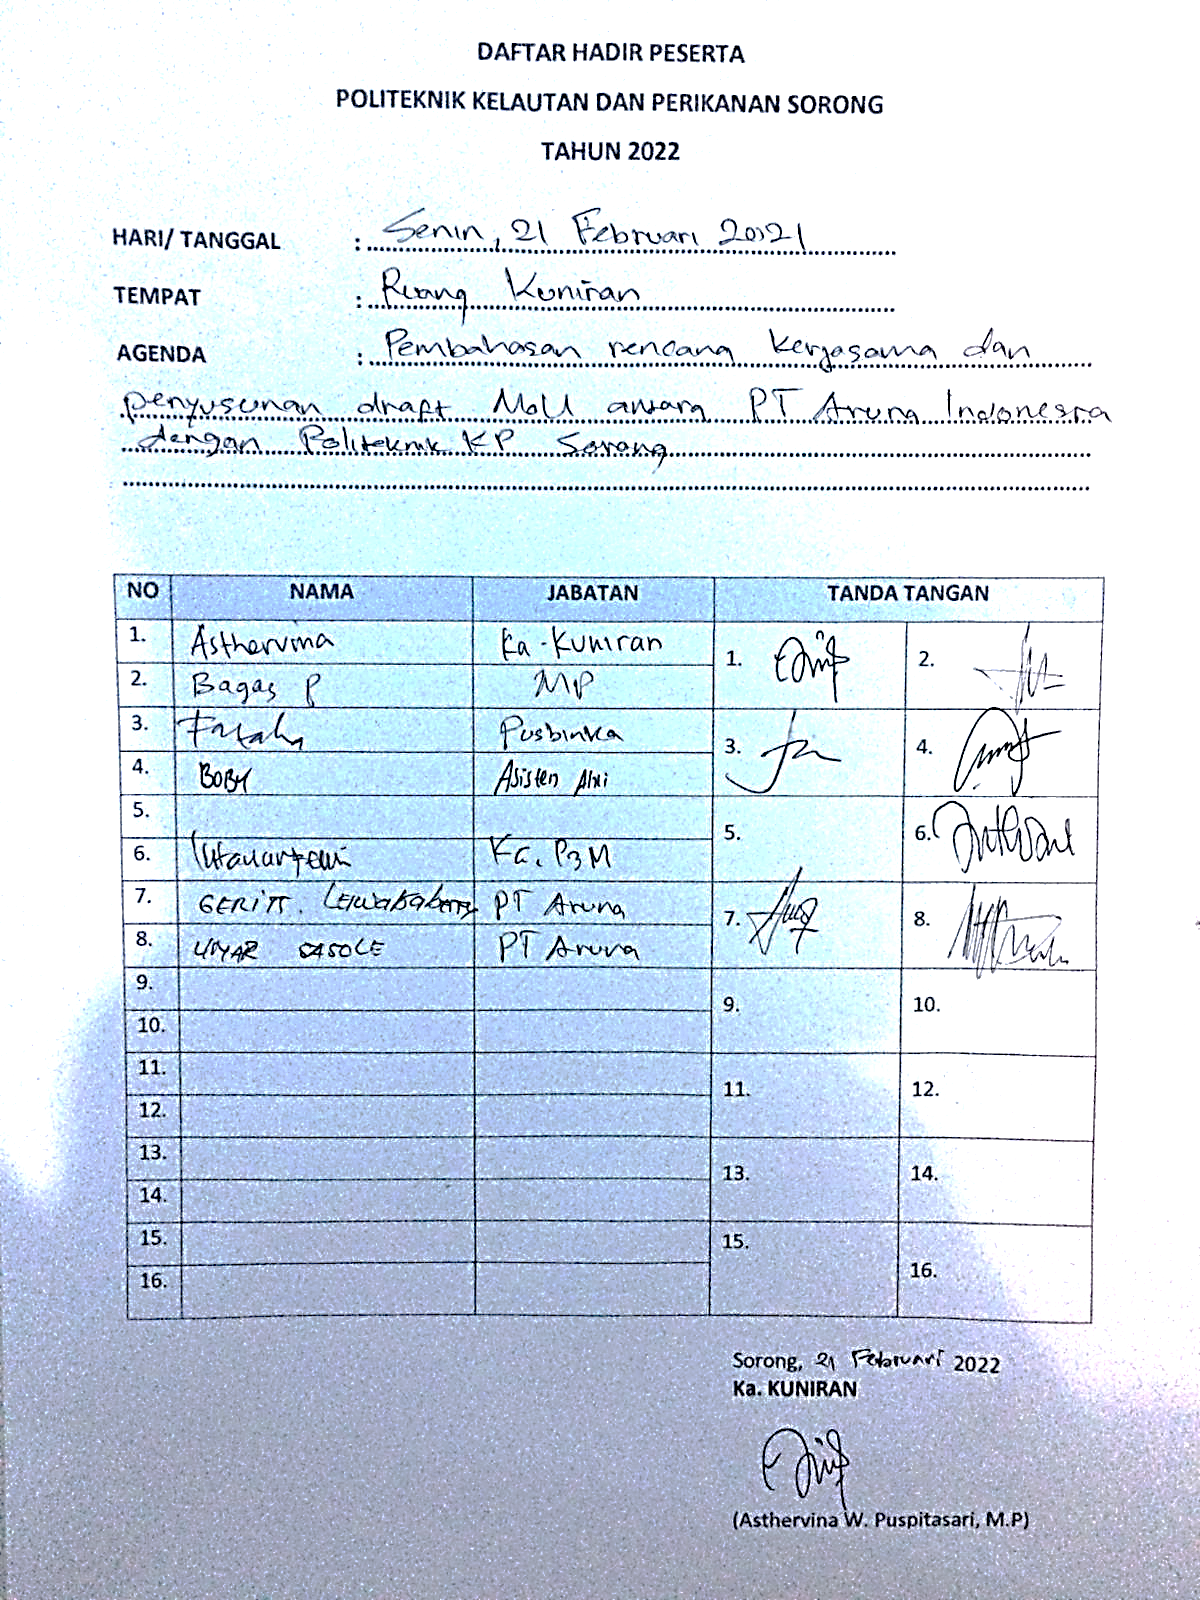 DAFTAR HADIR PESERTA
POLITEKNIK KELAUTAN DAN PERIKANAN SORONG
TAHUN 2022
HARI/ TANGGAL : Senin, 21 Februari 2021
TEMPAT : Ruang Kuniran
AGENDA : Pembahasan rencana kerjasama dan
penyusunan draft MoU antara PT Aruna Indonesia
dengan Politeknik KP Sorong
NO NAMA JABATAN TANDA TANGAN
1. Asthervina Ka-Kuniran 1. 2.
2. Bagas P MP
3. Fatah Pusbinka 3. 4.
4. BOBY Asisten Ahli
5. 5. 6.
6. Ka. P3M
7. GERITT. PT Aruna 7. 8.
8. UMAR SASOLE PT Aruna
9. 9. 10.
10.
11. 11. 12.
12.
13. 13. 14.
14.
15. 15. 16.
16.
Sorong, 21 Februari 2022
Ka. KUNIRAN
(Asthervina W. Puspitasari, M.P)